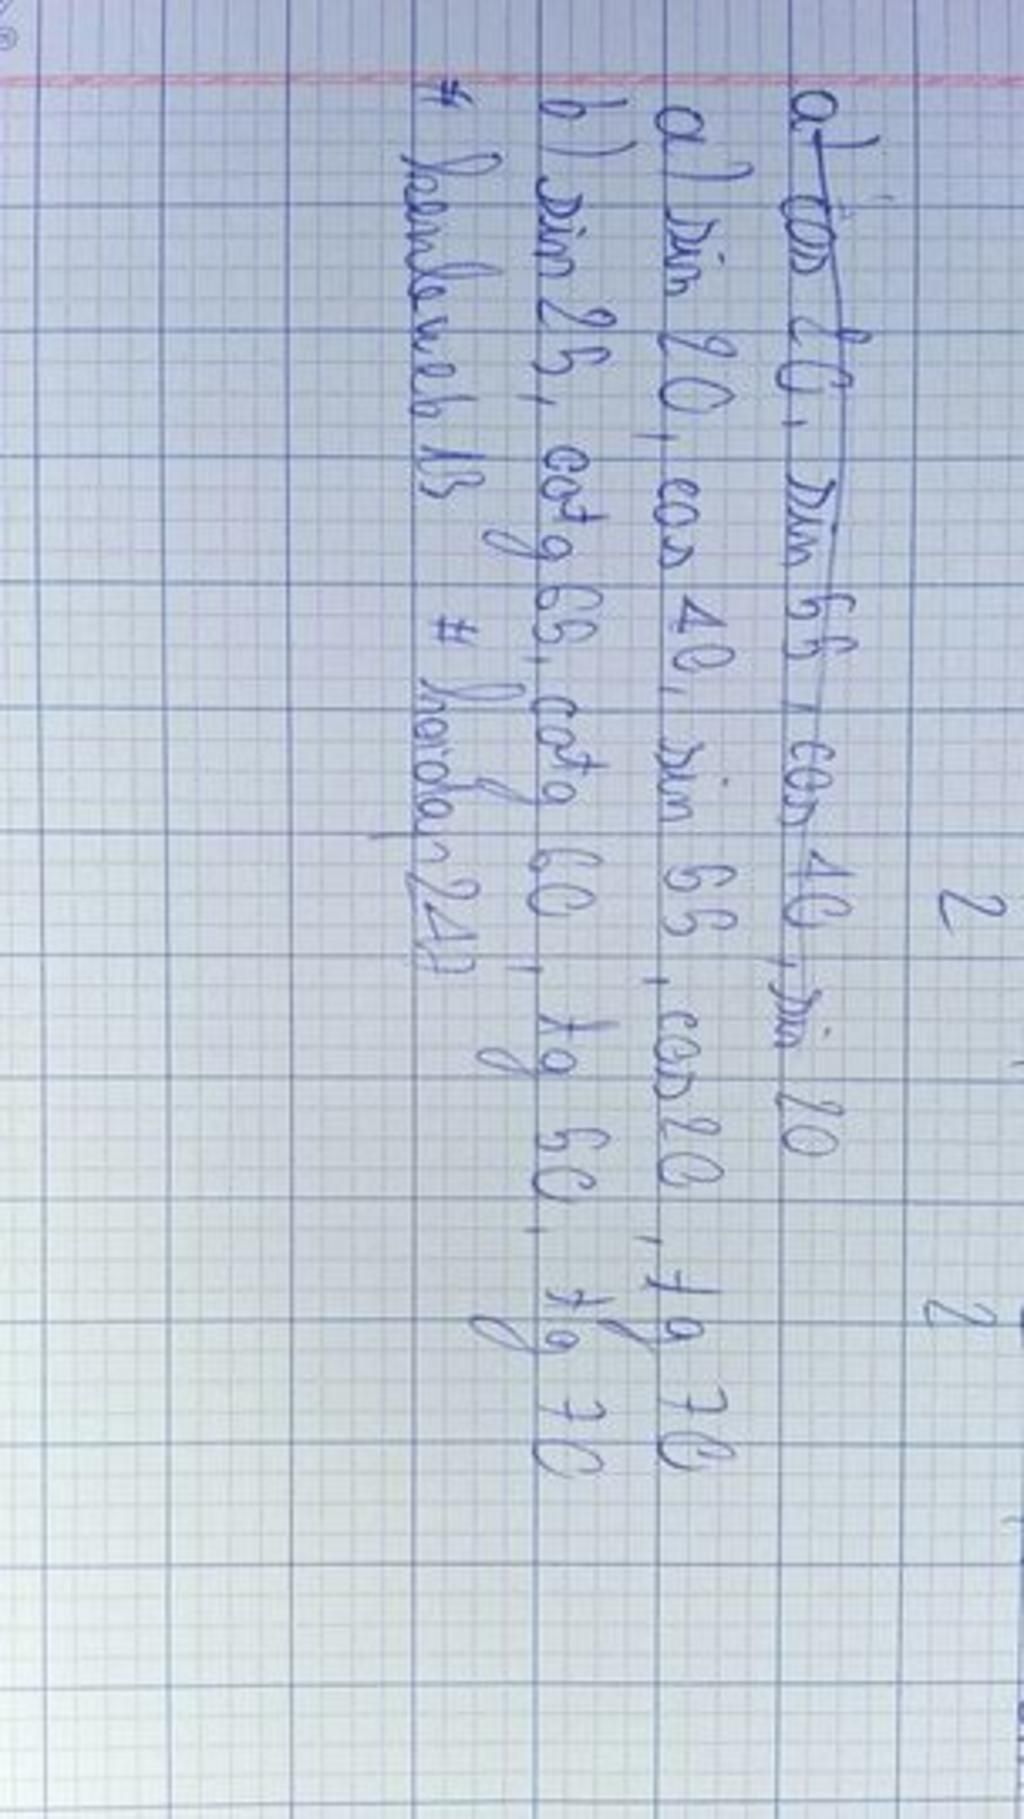 2 2
a) cos 20, sin 55, cos 40, sin 20
a) sin 20, cos 40, sin 55, cos 20, tg 70
b) sin 25, cotg 65, cotg 60, tg 50, tg 70